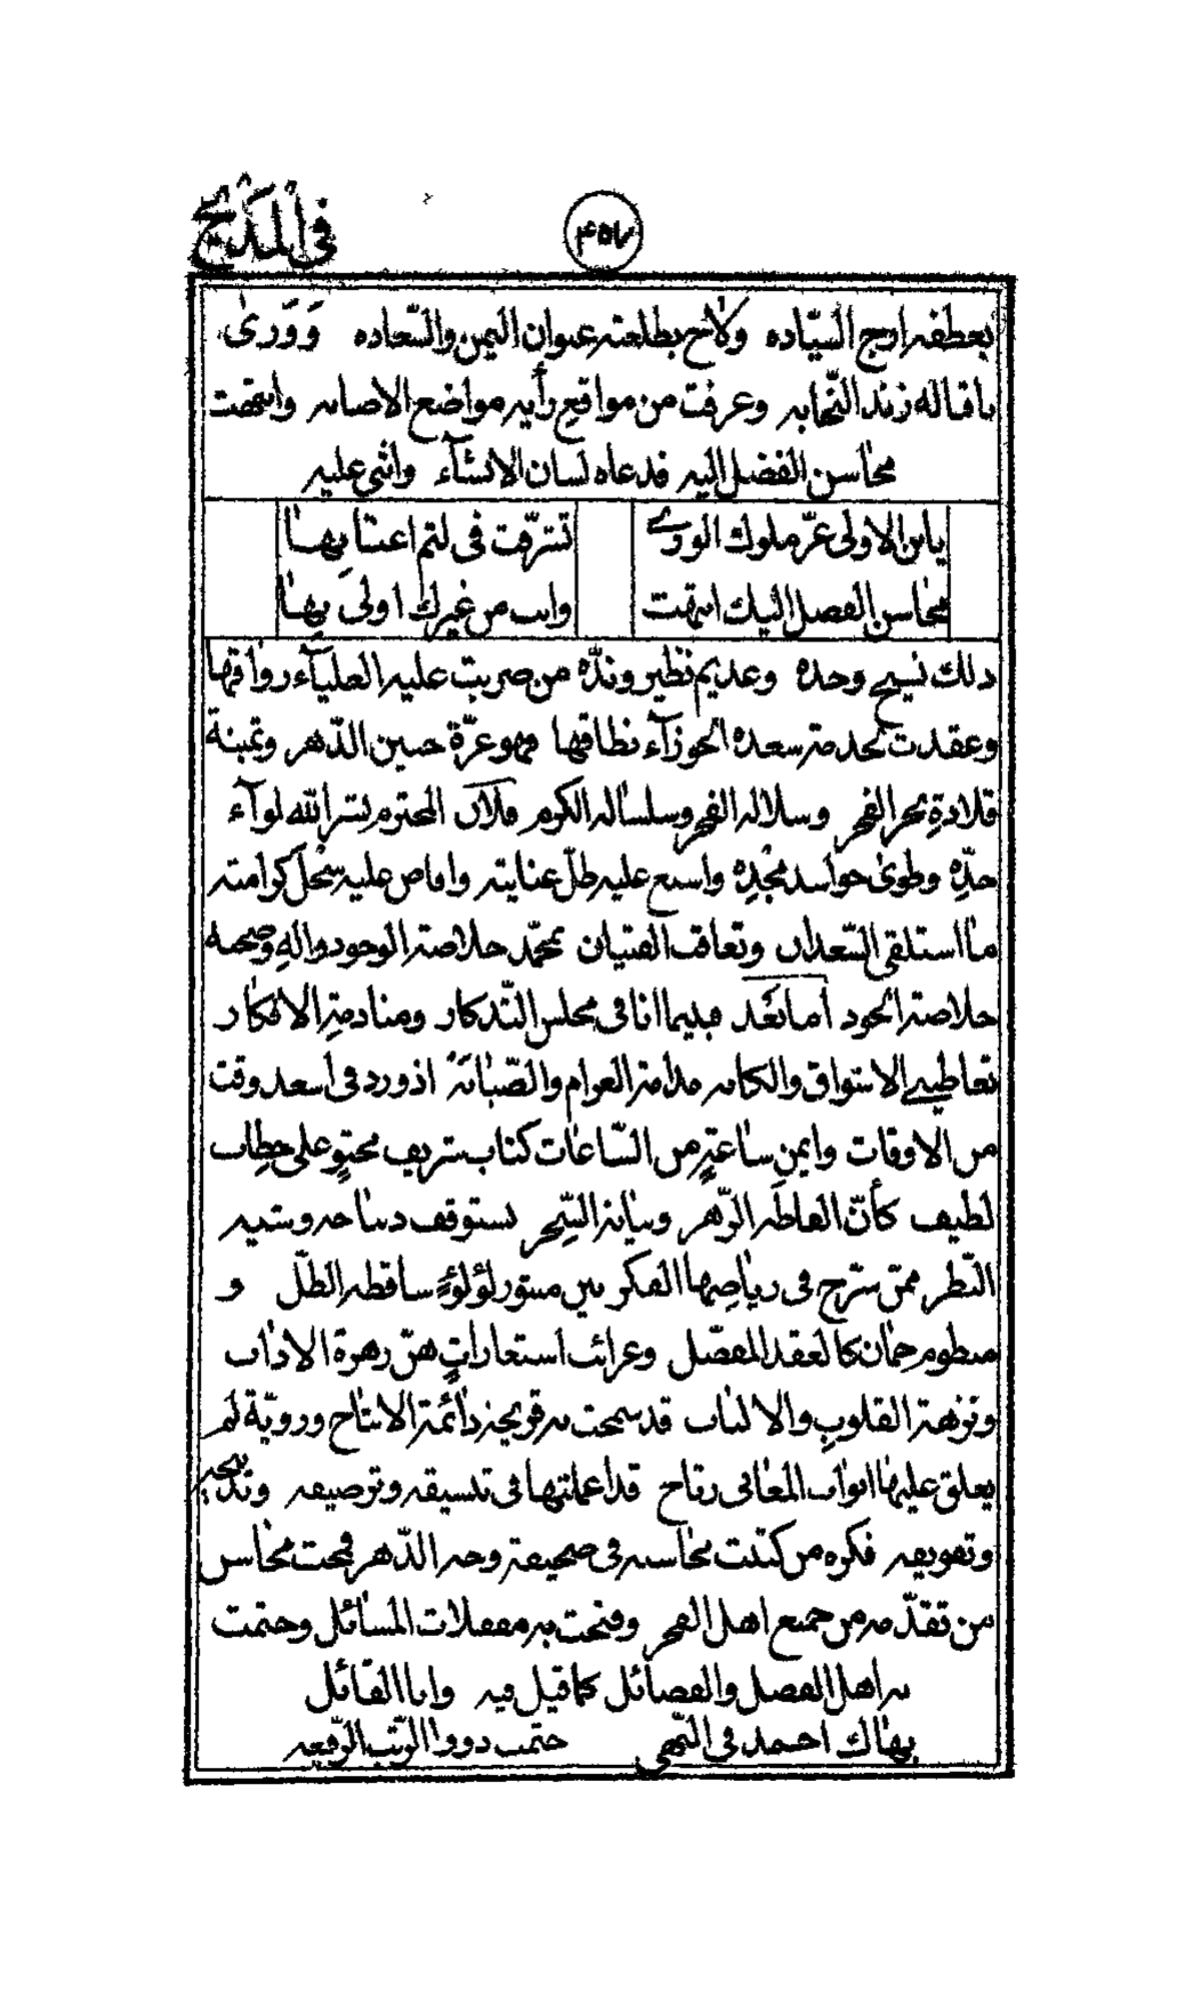 في المديح
٤٥٧
بعطفه اوج السّياده ولاح بطلعته عنوان اليمن والسّعاده وَوَرى
باقباله زند النّجابه وعرفت من مواقع رأيه مواضع الاصابه وانتهت
محاسن الفضل اليه فدعاه لسان الانشآء واثنى عليه
يابن الاولى عزّ ملوك الورى تشرّفت في لثم اعتابها
محاسن الفضل اليك انتهت وانت من غيرك اولى بها
ذلك نسيج وحده وعديم نظيره وندّه من ضربت عليه العليآء رواقها
وعقدت لخدمة سعده الجوزآء نطاقها فهو غرّة جبين الدّهر وثمينة
قلادةِ نحر الفخر وسلالة الفخر وسلسالة الكرم فلان المحترم نشر الله لوآء
جدّه وطوى حواسد مجده واسبغ عليه ظلّ عنايته وافاض عليه سجل كرامته
ما استلقى السّعدان وتعاقب الفتيان بمحمّد خلاصة الوجود واله وصحبه
خلاصة الجود أما بَعد فبينما انا في مجلس التّذكار ومنادمةِ الافكار
تعاطيني الاشواق والكابه مدامة الغرام والصّبابَة اذ ورد في أسعد وقت
من الأوقات وايمن ساعةٍ من السّاعات كتاب شريف محتوٍ على خطاب
لطيف كأنّ الفاظه الزّهر وبيانه السِّحر تستوقف ديباجه وشيه
النّظر ممّن سرّح في رياضها الفكر بين منثور لؤلؤٍ ساقطه الطّلّ و
منظوم جمان كالعقد المفصّل وغرائب استعاراتٍ هنّ زهرة الاداب
ونزهة القلوب والالباب قد سمحت به قريحة دائمة الانتاج ورويّة لم
يغلق عليها ابواب المعاني رتاج قد اعملتها في تنسيقه وترصيعه وتدبيجه
وتفويفه فكره من كتبت محاسنه في صحيفة وجه الدّهر فمحت محاسن
من تقدّمه من جميع اهل العصر وفتحت به مقفلات المسائل وختمت
به اهل الفضل والفضائل كما قيل فيه وانا القائل
بهاك احمد في النّهى ختمت ذووا الرّتب الرّفيعه